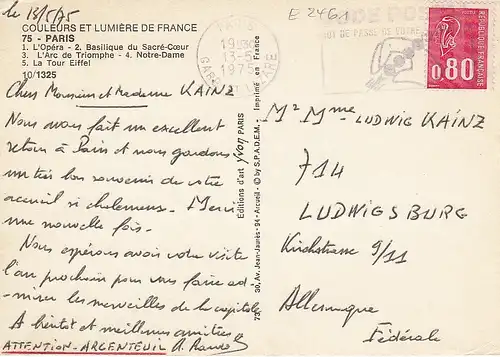 le 13/5/75
COULEURS ET LUMIÈRE DE FRANCE
75 - PARIS
1. L'Opéra - 2. Basilique du Sacré-Cœur
3. L'Arc de Triomphe - 4. Notre-Dame
5. La Tour Eiffel
10/1325
Chers Monsieur et Madame KAINZ
Nous avons fait un excellent
retour à Paris et nous gardons
un très bon souvenir de votre
accueil si chaleureux. Merci
une nouvelle fois.
Nous espérons avoir votre visite
l'an prochain pour vous faire ad-
-mirer les merveilles de la capitale
A bientôt et meilleures amitiés
ATTENTION - ARGENTEUIL
Editions d'art yvon PARIS
30, Av. Jean-Jaurès - 94 - Arcueil - © by S.P.A.D.E.M. - Imprimé en France
E 2461
PARIS
19H30
13-5
1975
GARE ST LAZARE
CODE POSTAL
MOT DE PASSE DE VOTRE
RÉPUBLIQUE FRANÇAISE
0,80
POSTES
Mr Mme LUDWIG KAINZ
714
LUDWIGSBURG
Kirchstrasse 9/11
Allemagne
Fédérale